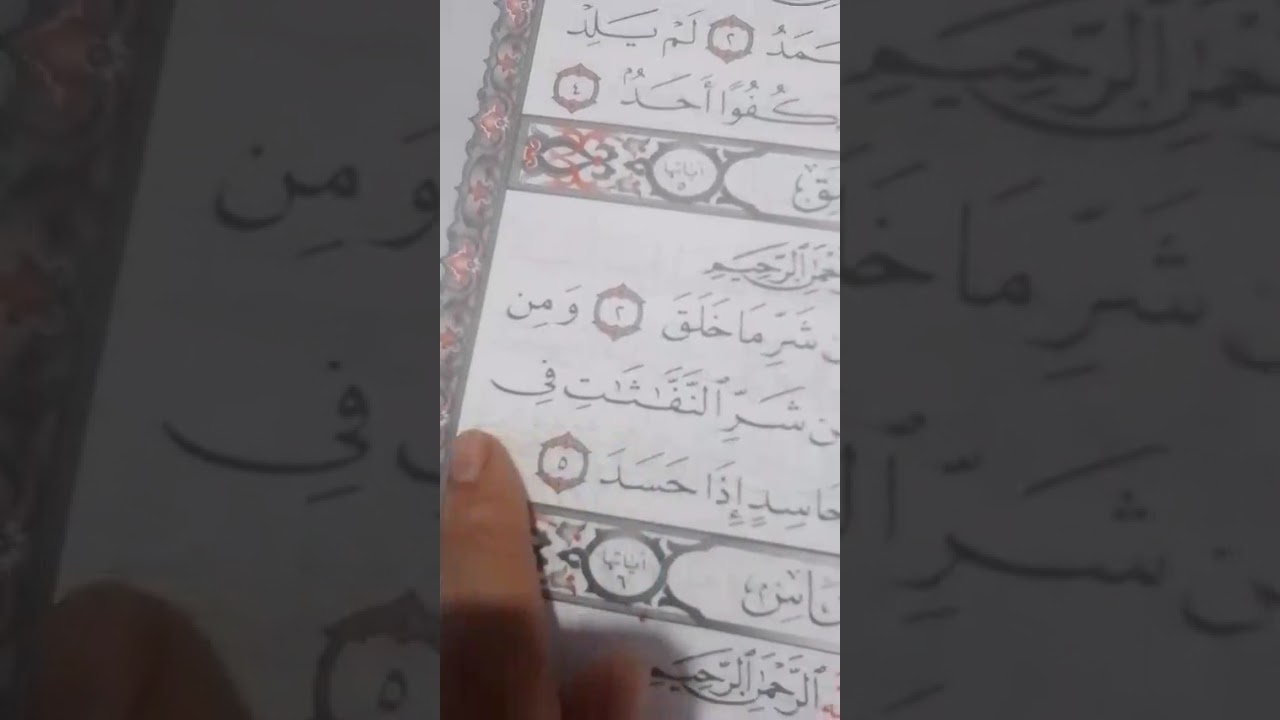 ٱلصَّمَدُ ٢ لَمْ يَلِدْ
كُفُوًا أَحَدٌۢ ٤
آياتها ٥
ٱلرَّحْمَٰنِ ٱلرَّحِيمِ
شَرِّ مَا خَلَقَ ٢ وَمِن
مِن شَرِّ ٱلنَّفَّٰثَٰتِ فِى
حَاسِدٍ إِذَا حَسَدَ ٥
آياتها ٦
ٱلنَّاسِ
ٱلرَّحْمَٰنِ ٱلرَّحِيمِ